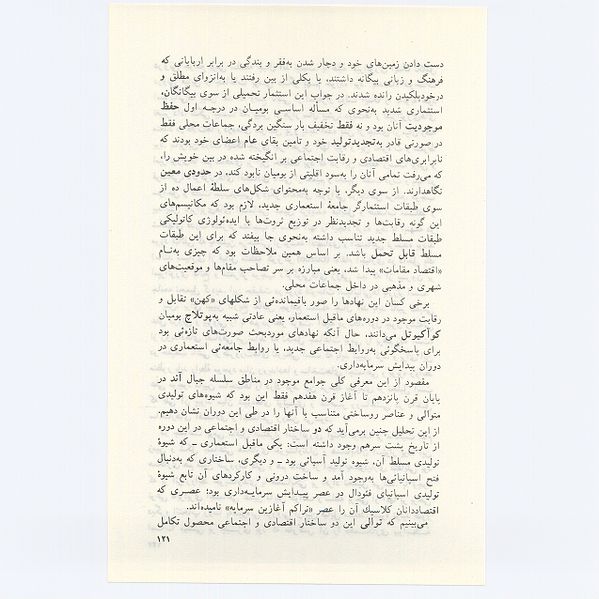 دست دادن زمین‌های خود و دچار شدن به‌فقر و بندگی در برابر اربابانی که
فرهنگ و زبانی بیگانه داشتند، یا بکلی از بین رفتند یا به‌انزوای مطلق و
درخودبلکیدن رانده شدند. در جواب این استثمار تحمیلی از سوی بیگانگان،
استثماری شدید به‌نحوی که مسأله اساسـی بومیـان در درجـه اول حفظ
موجودیت آنان بود و نه فقط تخفیف بار سنگین بردگی، جماعات محلی فقط
در صورتی قادر به‌تجدیدتولید خود و تأمین بقای عام اعضای خود بودند که
نابرابری‌های اقتصادی و رقابت اجتماعی بر انگیخته شده در بین خویش را،
که می‌رفت تمامی آنان را به‌سود اقلیتی از بومیان نابود کند، در حدودی معین
نگاهدارند. از سوی دیگر، با توجه به‌محتوای شکل‌های سلطهٔ اعمال ده از
سوی طبقات استثمارگر جامعهٔ استعماری جدید، لازم بود که مکانیسم‌های
این گونه رقابت‌ها و تجدیدنظر در توزیع ثروت‌ها با ایده‌ئولوژی کاتولیکی
طبقات مسلط جدید تناسب داشته به‌نحوی جا بیفتد که برای این طبقات
مسلط قابل تحمل باشد. بر اساس همین ملاحظات بود که چیزی به‌نـام
«اقتصاد مقامات» پیدا شد، یعنی مبارزه بر سر تصاحب مقام‌ها و موقعیت‌های
شهری و مذهبی در داخل جماعات محلی.
برخی کسان این نهادها را صور باقیمانده‌ئی از شکلهای «کهن» تقابل و
رقابت موجود در دوره‌های ماقبل استعمار، یعنی عادتی شبیه به‌پوتلاچ بومیان
کوآکیوتل می‌دانند، حال آنکه نهادهای موردبحث صورت‌های تازه‌ئی بود
برای پاسخگوئی به‌روابط اجتماعی جدید، یا روابط جامعه‌ئی استعماری در
دوران پیدایش سرمایه‌داری.
مقصود از این معرفی کلی جوامع موجود در مناطق سلسله جبال آند در
پایان قرن پانزدهم تا آغاز قرن هفدهم فقط این بود که شیوه‌های تولیدی
متوالی و عناصر روساختی متناسب با آنها را در طی این دوران نشان دهیم.
از این تحلیل چنین برمی‌آید که دو ساختار اقتصادی و اجتماعی در این دوره
از تاریخ پشت سرهم وجود داشته است: یکی ماقبل استعماری ــ که شیوهٔ
تولیدی مسلط آن، شیوه تولید آسیائی بود ــ و دیگری، ساختاری که به‌دنبال
فتح اسپانیائی‌ها به‌وجود آمد و ساخت درونی و کارکردهای آن تابع شیوهٔ
تولیدی اسپانیای فئودال در عصر پیـدایش سرمایـه‌داری بود؛ عصـری که
اقتصاددانان کلاسیك آن را عصر «تراکم آغازین سرمایه» نامیده‌اند.
می‌بینیم که توالی این دو ساختار اقتصادی و اجتماعی محصول تکامل
۱۲۱